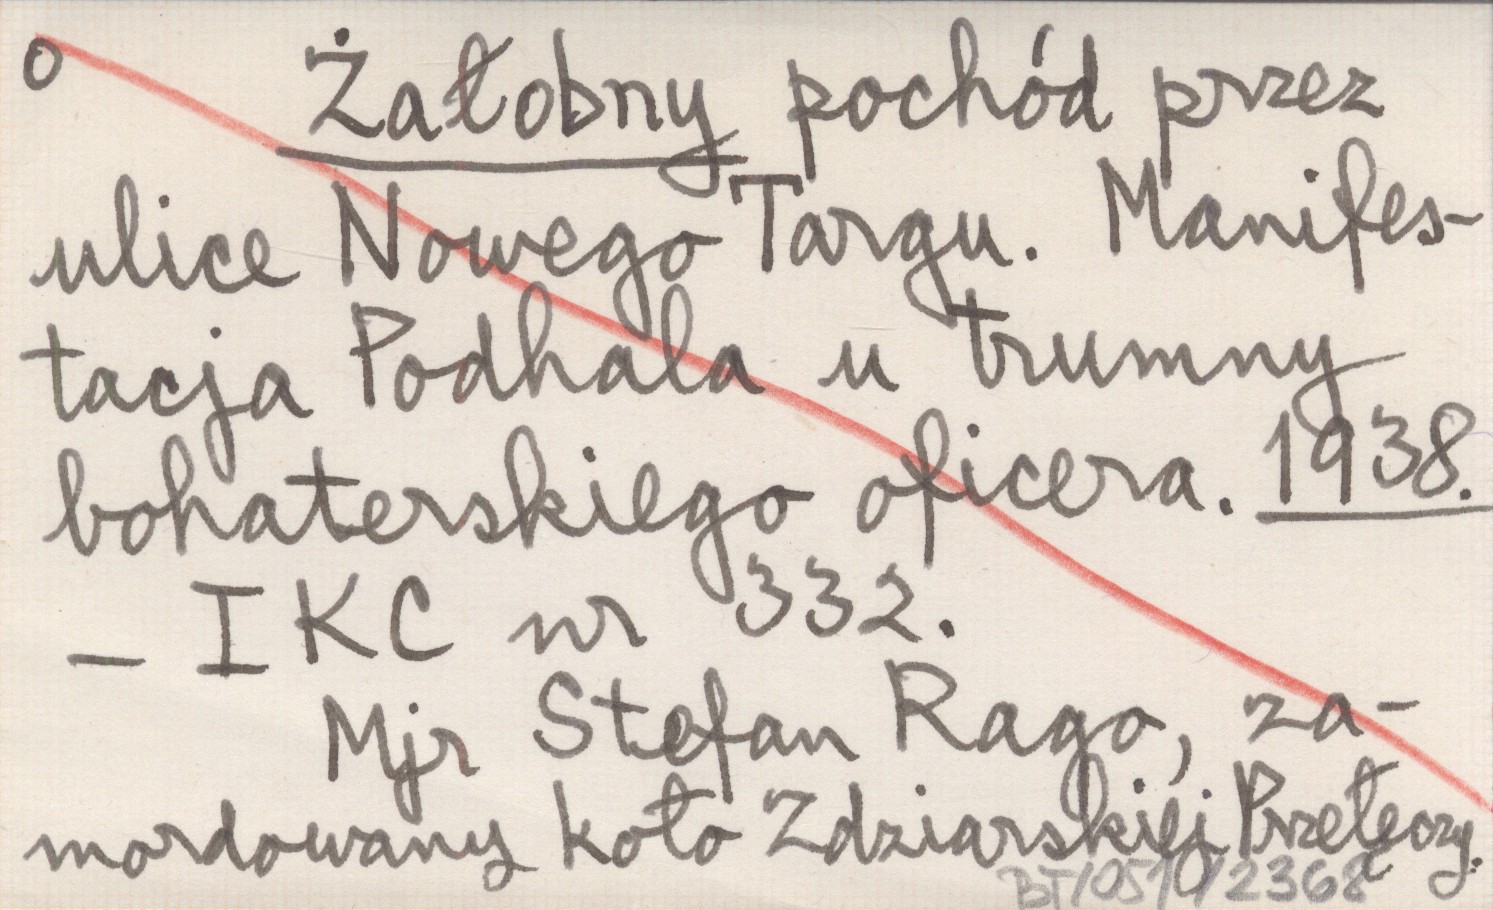 o Żałobny pochód przez
ulice Nowego Targu. Manifes-
tacja Podhala u trumny
bohaterskiego oficera. 1938.
– IKC nr 332.
Mjr Stefan Rago, za-
mordowany koło Zdziarskiej Przełęczy.